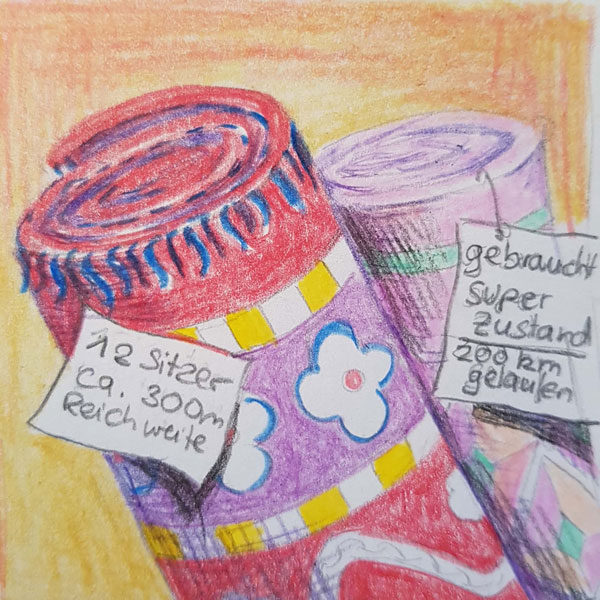 12 Sitzer
ca. 300m
Reichweite
gebraucht
super
Zustand
200 km
gelaufen